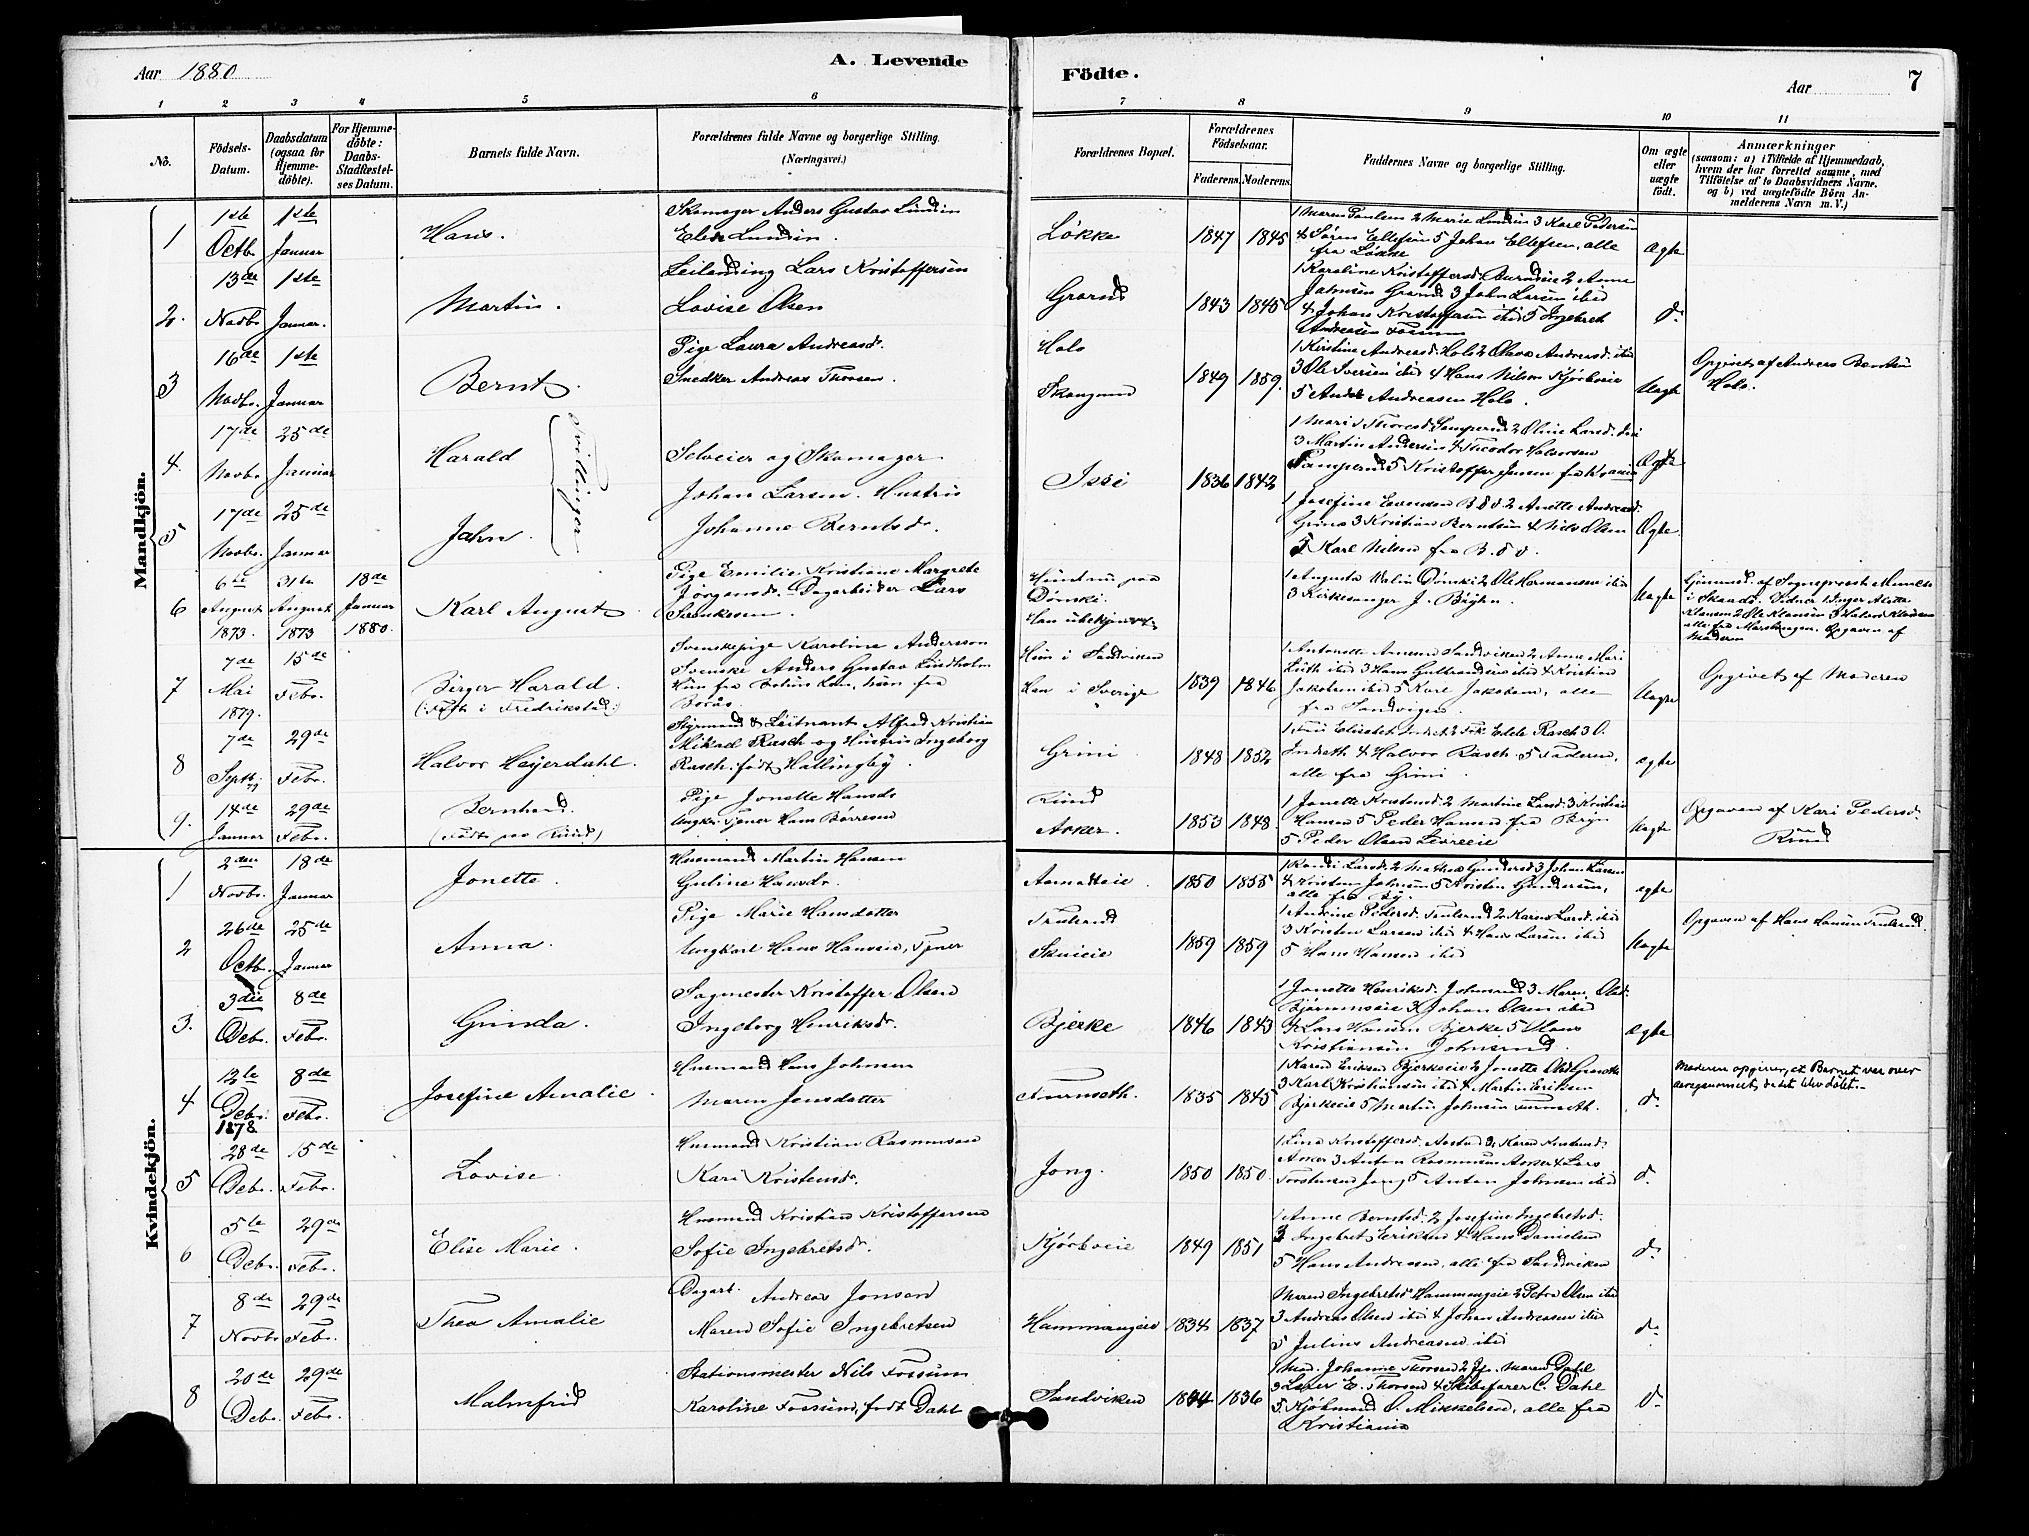 Aar 1880
A. Levende
Födte.
Aar
7
1 2 3 4 5 6 7 8 9 10 11
No.
Födsels-Datum.
Daabsdatum (ogsaa for Hjemme-döbte).
For Hjemme-döbte: Daabs-Stadfæstel-ses Datum.
Barnets fulde Navn.
Forældrenes fulde Navne og borgerlige Stilling.
(Næringsvei.)
Forældrenes Bopæl.
Forældrenes Födselsaar.
Faderens. Moderens.
Faddernes Navne og borgerlige Stilling.
Om ægte eller uægte födt.
Anmærkninger
(saasom: a) i Tilfælde af Hjemmedaab,
hvem der har forrettet samme, med
Tilföielse af to Daabsvidners Navne.
og b) ved uægtefödte Börn An-
melderens Navn m. V.)
Mandkjön.
1
1ste Octb.
1ste Januar
Hans.
Skomager Anders Gustav Lundin
Elise Lundin.
Løkke
1847 1845
1 Maren Paulsen 2 Marie Lundin 3 Karl Pedersen
4 Søren Ellefsen 5 Johan Ellefsen, alle
fra Løkke
ægte
2.
13de Novbr.
1ste Januar.
Martin.
Leilænding Lars Kristoffersen
Lovise Olsen
Grorud
1843 1845
1 Karoline Kristoffersd. 2 Anne
Johnsen Grorud 3 John Larsen ibid
4 Johan Kristoffersen ibid 5 Ingebret
Andreasen Fossum
do.
3
16de Novbr.
1ste Januar
Bernt.
Pige Laura Andreasd.
Snedker Andreas Thorsen.
Holo
Skougum
1849 1859.
1 Kristine Andreasd. Holo 2 Olava Andreasd. ibid
3 Ole Iversen ibid 4 Hans Nilsen Kjørboeie
5 Andreas Andreasen Holo.
Uægte
Opgivet af Andreas Berntsen
Holo.
4.
17de Novbr.
25de Januar
Harald
Tvillinger
Selveier og Skomager
Johan Larsen. Hustru
Issi
1836 1842
3 Martin Andersen 4 Theodor Halvorsen
5 Kristoffer Jensen fra
Ægte
5
17de Novbr.
25de Januar
John.
Johanne Berntsdr.
1 Josefine Evensen 2 Anette Andreasd.
Grini 3 Kristian Berntsen 4 Nils Olsen
5 Karl Nilsen fra
Ægte.
6
6te August 1873.
31te August 1873
18de Januar 1880.
Karl August
Pige Emilie Kristiane Margrete
Jørgensd. Dagarbeider Lars
Svendsen.
Hun paa
Dønski.
Han ubekjendt
1 Augusta Dønski 2 Ole Hermansen ibid
3 Kirkesanger J. Bøhn.
Uægte
af Sogneprest Munch
i Skaadø. Vidner 1 Inger
Klausen 2 Ole Klausen 3 Halvor Klausen
alle fra. Opgaven af
Moderen
7
7de Mai 1879.
15de Febr.
Birger Harald.
(Født i Fredrikstad.)
Svenskepige Karoline Andersson
Svenske Anders Gustav Lindholm
Hun fra Bohus Len, han fra
Borås.
Hun i Sandviken
Han i Sverige
1839 1846
1 Antonette Amundsen Sandviken 2 Anne Mari
ibid 3 Hans Gulbrandsen ibid 4 Kristian
Jakobsen ibid 5 Karl Jakobsen, alle
fra Sandvigen.
Uægte
Opgivet af Moderen
8
7de Septb.
29de Febr.
Halvor Heyerdahl.
Styrmand & Leitnant Alfred Kristian
Mikael Rasch og Hustru Ingeborg
Rasch. født Hallingby.
Grini
1848 1852
1 Fru Elisabeth 2 Frk. Edele Rasch 3 O.
4 Halvor Rasch. 5 Faderen,
alle fra Grini.
ægte
9.
14de Januar
29de Febr.
Bernhard.
(Født paa Rüud)
Pige Jonette Hansd.
Ungkr. Tjener Hans Børresen
Rüud
Asker.
1853 1848.
1 Jonette Kristensd. 2 Martine Larsd. 3 Kristian
Hansen 5 Peder Hansen fra
5 Peder Olsen
Uægte
Opgaven af Kari Pedersd.
Rüud
Kvindekjön.
1
2den Novbr.
18de Januar
Jonette.
Husmand Martin Hansen
Guline Hansdr.
1850 1855
1 Randi Larsd. 2 Mathea Gundersd. 3 Johan Larsen
4 Kristen Johnsen 5 Kristen Gundersen,
alle fra By.
ægte
2
26de Octb.
25de Januar
Anna.
Pige Marie Hansdatter
Ungkarl Hans Hansen, Tjener
Trulerud
Skuieie
1859 1859
1 Andrine Pedersd. Trulerud 2 Karen Larsd. ibid
3 Kristen Larsen ibid 4 Hans Larsen ibid
5 Hans Hansen ibid
Uægte
Opgaven af Hans Hansen Trulerud.
3.
3die Debr.
8de Febr.
Ginda.
Sagmester Kristoffer Olsen
Ingeborg Henriksdr.
Bjerke
1846 1843
1 Jonette Henriksd. Johnsrud 3 Maren Olsd.
3 Johan Olsen ibid
4 Lars Hansen Bjerke 5 Hans
Kristiansen Johnsrud.
ægte
4
12te Debr. 1878
8de Febr.
Josefine Amalie.
Husmand Hans Johnsen
Maren Jonsdatter
Furuseth.
1835 1845
1 Karen Eriksen Bjerkeeie 2 Jonette Olsd.
3 Karl Kristiansen ibid 4 Martin Eriksen
Bjerkeeie 5 Martin Johnsen Furuseth.
do.
Moderen opgiver, at Barnet var over
aaregammelt, da det blev døbt.
5
28de Debr.
15de Febr.
Lovise.
Husmand Kristian Rasmussen
Kari Kristensd.
Jong.
1850 1850.
1 Lina Kristoffersd. 3. Karen Kristensd.
Asker 3 Anton Rasmussen Asker 4 Lars
Torstensen Jong 5 Anton Johnsen ibid
do.
6
5te Debr.
29de Febr.
Elise Marie.
Husmand Kristian Kristoffersen
Sofie Ingebretsdr.
Kjørboeie
1849 1851
1 Anne Berntsd. 2 Josefine Ingebretsd.
3 Ingebret Eriksen 4 Hans Danielsen
5 Hans Andreasen, alle fra Sandviken
do.
7
8de Novbr.
29de Febr.
Thea Amalie
Dagarb. Andreas Jonsen
Maren Sofie Ingebretsen
Hammangeie
1834 1837
Maren Ingebretsd. Hammangeie 2 Petra Olsen ibid
3 Andreas Olsen ibid 4 Johan Andreasen ibid
5 Julius Andreasen ibid
do.
8
20de Debr.
29de Febr.
Malmfrid
Stationsmester Nils Fossum
Karoline Fossum, født Dahl
Sandviken
1844 1836
1 Mad. Johanne Thorsen 2 Jfr. Maren Dahl
3 Lærer E. Thorsen 4 Skibsfører C. Dahl
5 Kjøbmand O. Mikkelsen, alle fra
Kristiania
do.